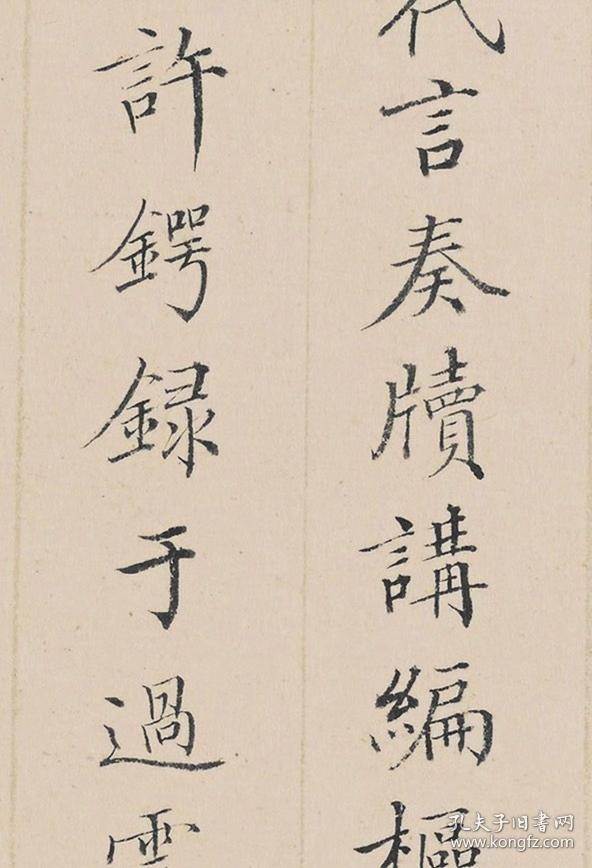 代言奏牘講編樞
許鍔録于過雲
孔夫子旧书网
www.kongfz.com